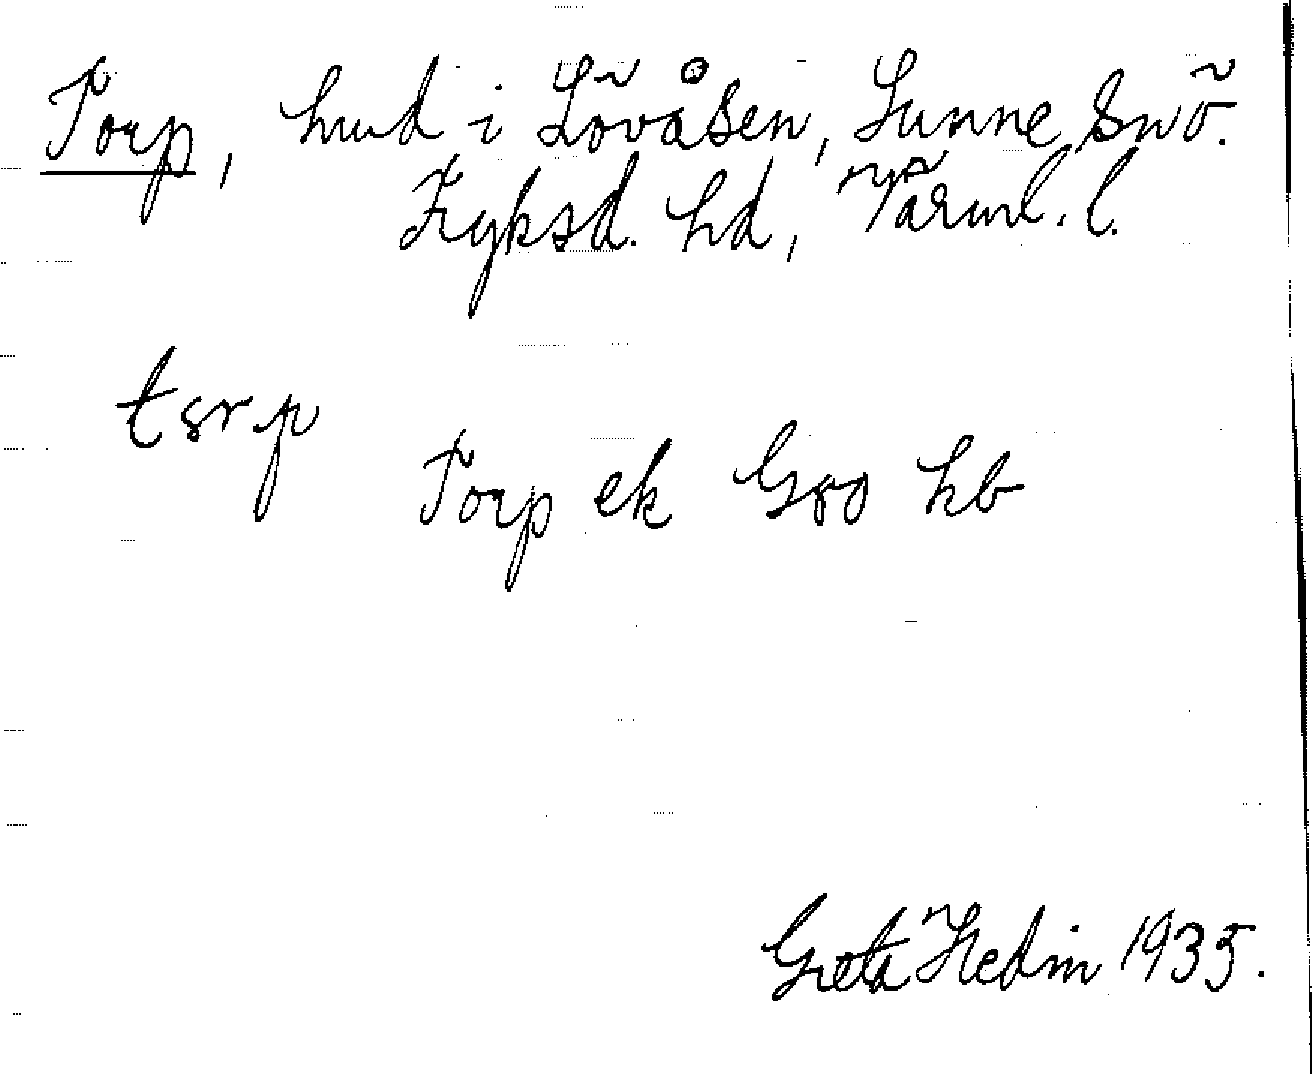 Torp, hmd i Lövåsen, Sunne snö.
Fryksd. hd, Värml. l.
tsrp
Torp ek G80 hb
Greta Hedin 1935.